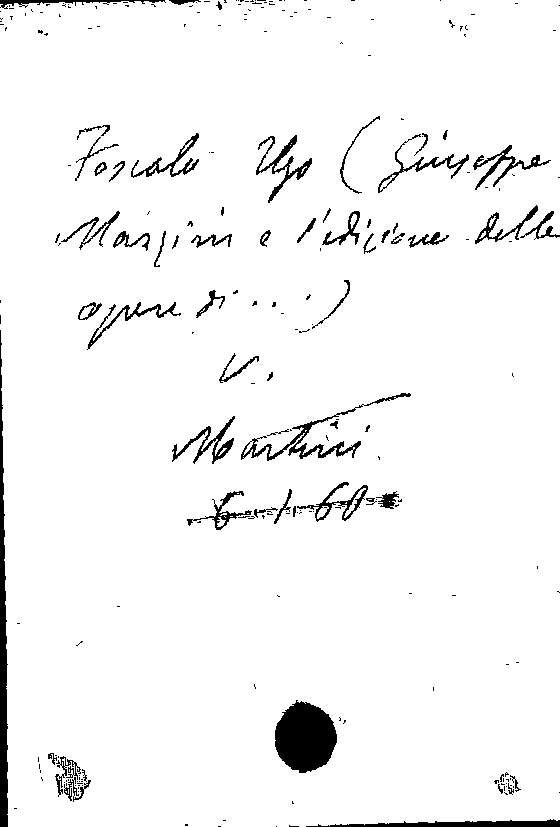 Foscolo Ugo (Giuseppe
Mazzini e l'edizione delle
opere di . . . )
V.
Martini
6.1.60